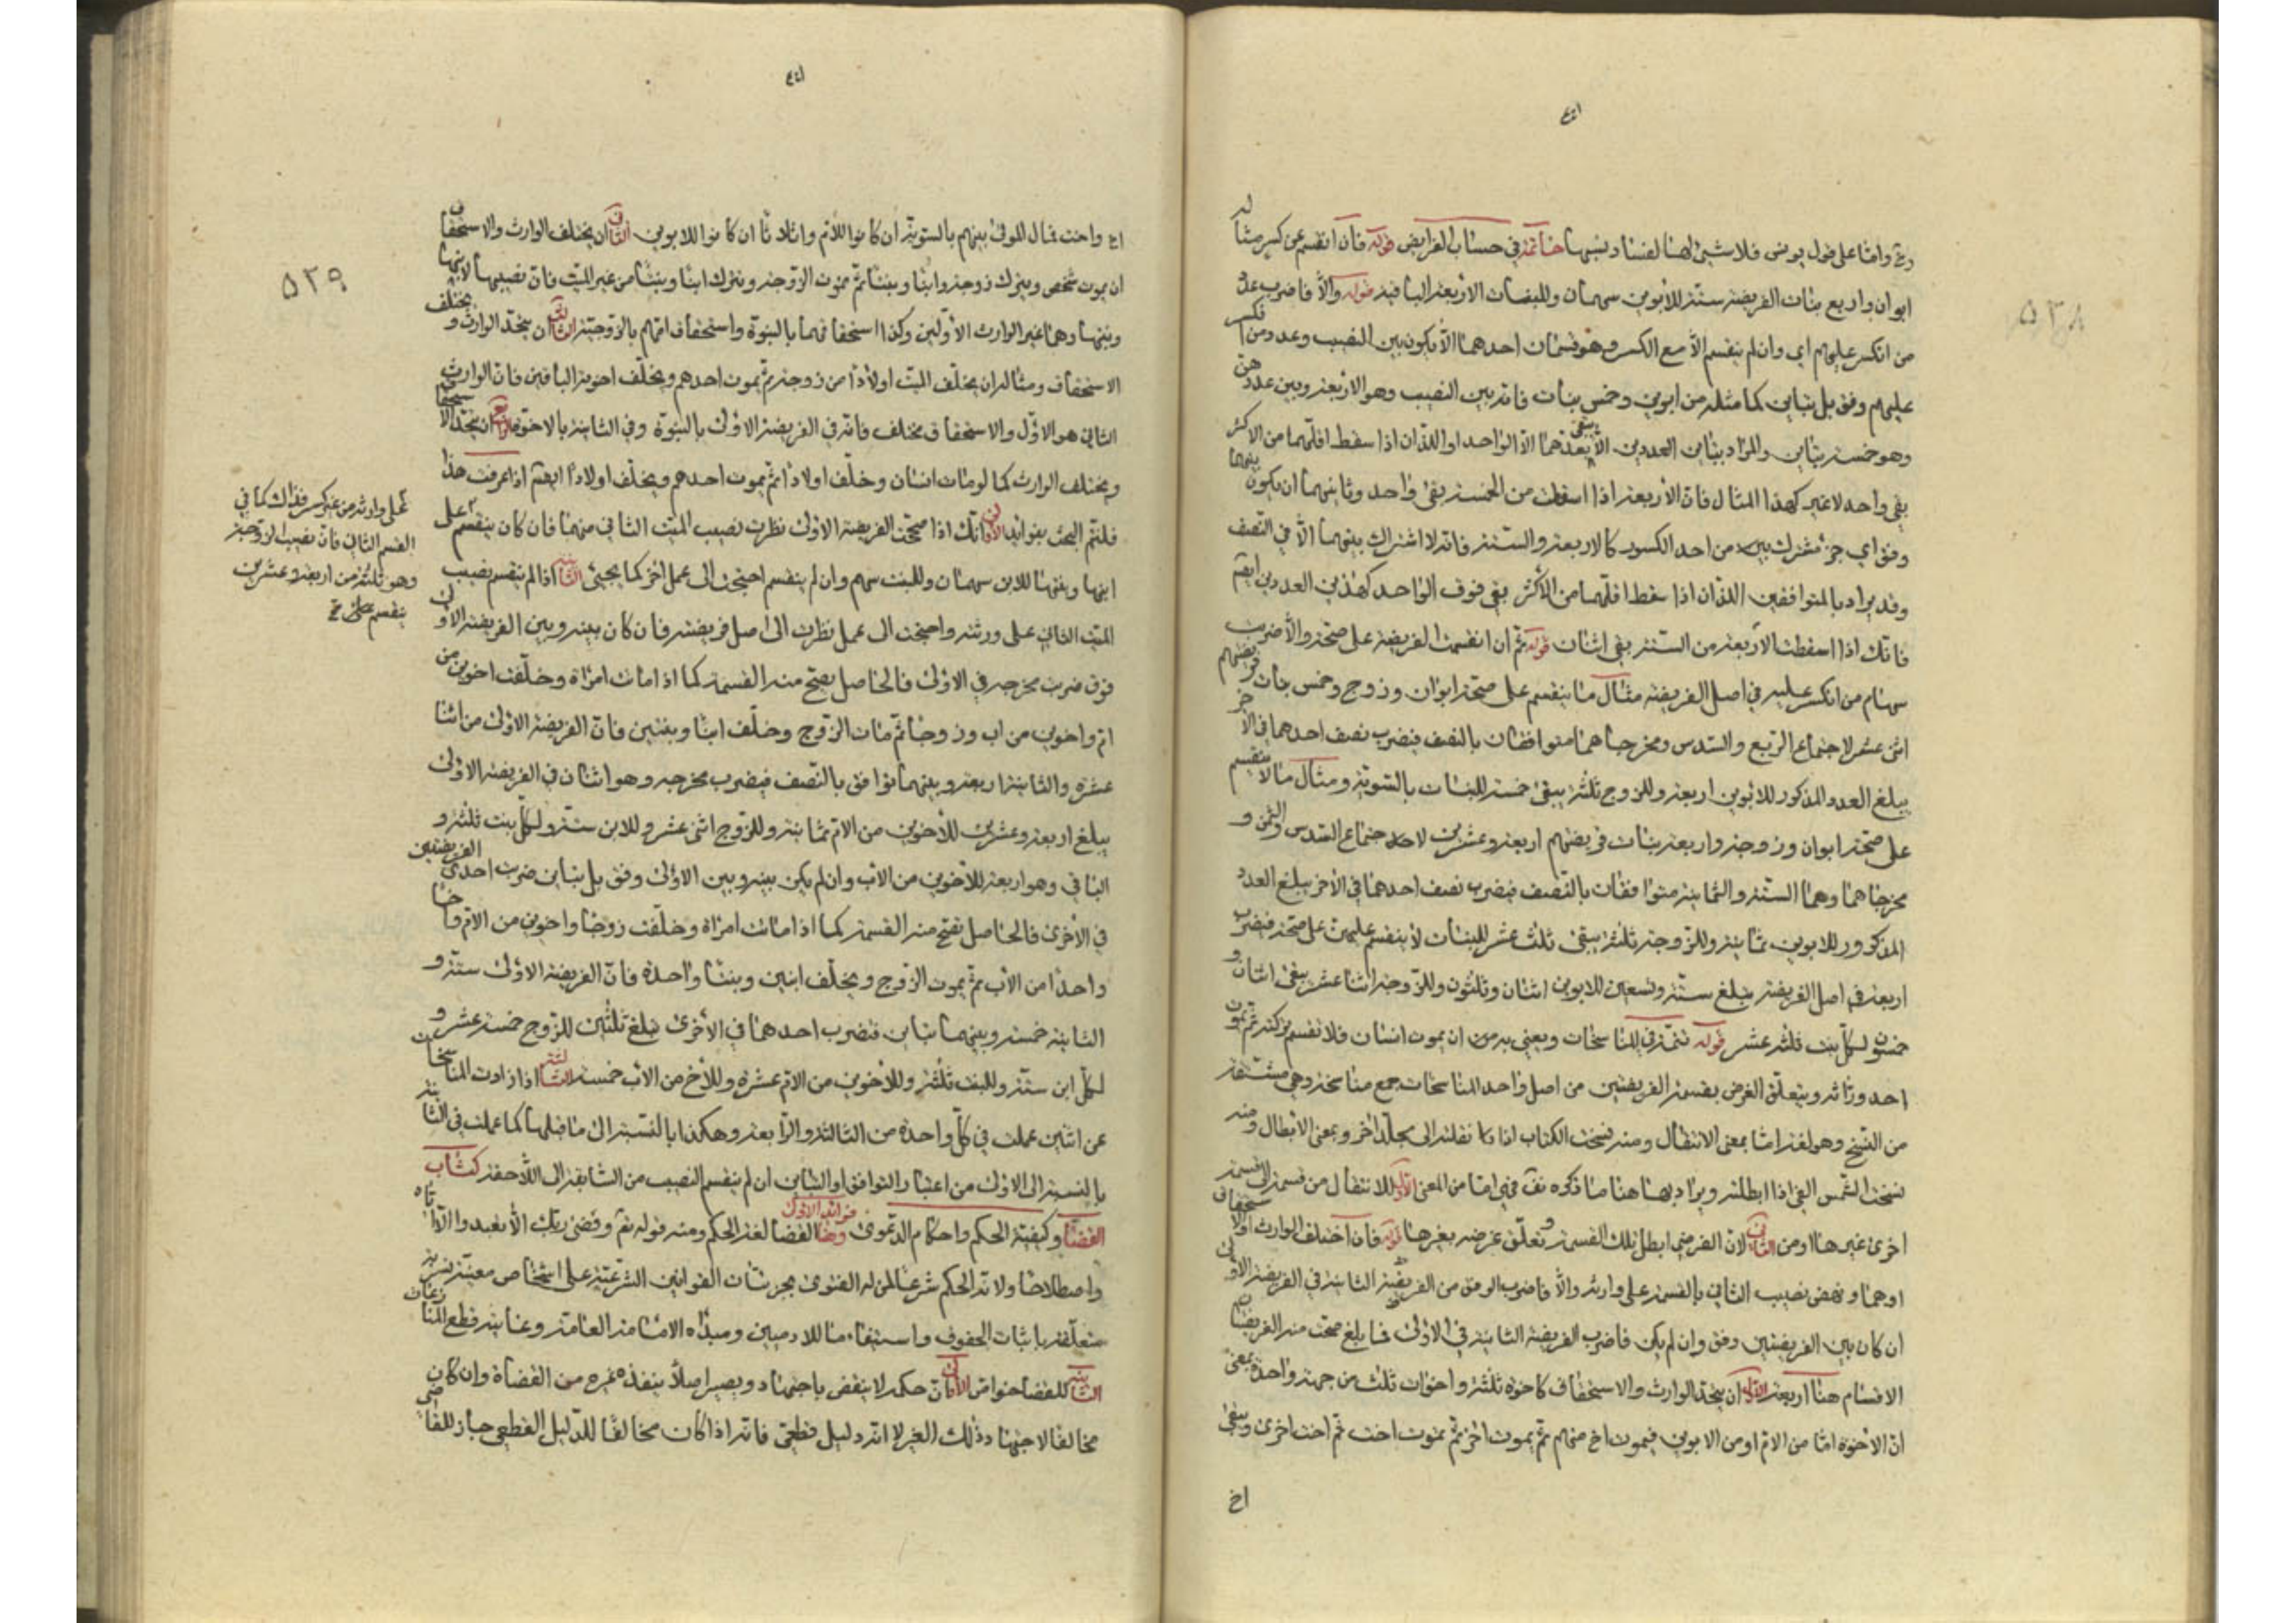 ٥٣٨
وامّا على قول يونس فلا شيئ لهنا لفساد نسبها خاتمة في حساب الفرايض قوله فان انقسم عن كسر مثاله
ابوان واربع بنات الفريضة ستّة للأبوين سهمان وللبنات الأربعة الباقية قوله والّا فاضرب عدد
من انكسر عليهم اي وان لم ينقسم الّا مع الكسر وهو قسمان احدهما الّا يكون بين النصيب وعدد من انكسر
عليهم وفق بل تباين كما مثله من ابوين وخمس بنات فانه بين النصيب وهو الاربعة وبين عددهن
وهو خمسة تباين والمراد بتباين العددين الّا يعدّهما الّا الواحد او اللذان اذا سقط اقلّهما من الاكثر
بقى واحد لا غير كهذا المثال فان الأربعة اذا اسقطت من الخمسة بقى واحد وثانيهما ان يكون بينهما
وفق اي جزء مشترك بين من احد الكسور كالاربعة والستة فانه لا اشتراك بينهما الّا في النصف
وقد يراد بالمتوافقين اللذان اذا سقط اقلّهما من الأكثر بقى فوق الواحد كهذين العددين ايضا
فانك اذا اسقطت الأربعة من الستة بقى اثنان قوله ثمّ ان انقسمت الفريضة على صحّة والّا ضربت
سهام من انكسر عليه في اصل الفريضة مثال ما ينقسم على صحّة ابوان وزوج وخمس بنات فريضتهم
اثنى عشر لاجتماع الربع والسدس ومخرجاهما متوافقان بالنصف فيضرب نصف احدهما في الآخر
يبلغ العدد المذكور للأبوين اربعة وللزوج ثلثة يبقى خمسة للبنات بالسّويّة ومثال ما لا ينقسم
على صحّة ابوان وزوجة واربعة بنات فريضتهم اربعة وعشرين لاجتماع السّدس والثمن و
مخرجاهما وهما الستّة والثمانية متوافقان بالنّصف فيضرب نصف احدهما في الأخر يبلغ العدد
المذكور للابوين ثمانية وللزّوجة ثلثة يبقى ثلث عشر للبنات لا ينقسم عليهن على صحّة فيضرب
اربعة في اصل الفريضة يبلغ ستّة وتسعين للابوين اثنان وثلثون وللزّوجة اثنا عشر يبقى اثنان و
خمسون لكلّ بنت ثلثة عشر قوله تتمّة في المناسخات ويعنى به من ان يموت انسان فلا تقسم تركته ثمّ يموت
احد ورّاثه ويتعلّق الغرض بقسمة الفريضتين من اصل واحد المناسخات جمع مناسخة وهي مشتقة
من النّسخ وهو لغة امّا بمعنى الانتقال ومنه نسخت الكتاب اذا نقلته الى مجلّد اخر وبمعنى الأبطال ومنه
نسخت الشّمس الفئ اذا ابطلته ويراد بها هنا ما ذكره فهي امّا من المعنى الأوّل للانتقال من قسمة الى قسمة
اخرى غيرها او من الثاني لانّ الفرضي ابطل تلك القسمة وتعلّق غرضه بغيرها قوله فان اختلف الوارث او الاستحقاق
اوهما ونهض نصيب الثاني بالقسمة على وارثه والّا فاضرب الوفق من الفريضة الثانية في الفريضة الاولى
ان كان بين الفريضتين وفق وان لم يكن فاضرب الفريضة الثانية في الاولى فما بلغ صحّت منه الفريضتان
الاقسام هنا اربعة الأوّل ان يتّحد الوارث والاستحقاق كاخوة ثلثة واخوات ثلث من جهة واحدة بمعنى
انّ الأخوة امّا من الامّ او من الابوين فيموت اخ منهم ثمّ يموت اخر ثمّ يموت اخت ثمّ اخت اخرى ويبقى
اخ
٥٣٩
اخ واخت فمال الموتى بينهم بالسّويّة ان كانوا للأمّ واثلاثا ان كانوا للابوين الثاني ان يختلف الوارث والاستحقاق
ان يموت شخص ويترك زوجة وابنًا وبنتًا ثمّ تموت الزّوجة وتترك ابنًا وبنتًا من غير الميّت فان نصيبها لابنها
وبنتها وهما غير الوارث الأوّلين وكذا استحقاقهما بالبنوّة واستحقاق امّهم بالزّوجيّة الثالث ان يتّحد الوارث ويختلف
الاستحقاق ومثاله ان يخلّف الميّت اولادًا من زوجة ثمّ يموت احدهم ويخلّف اخوته الباقين فانّ الوارث
الثاني هو الاوّل والاستحقاق مختلف فانه في الفريضة الاولى بالبنوّة وفي الثانية بالاخوّة الرابع ان يتّحد الاستحقاق
ويختلف الوارث كما لو مات انسان وخلّف اولادًا ثمّ يموت احدهم ويخلّف اولادًا ايضا اذا عرفت هذا
فلنتمّ البحث بفوائد الأولى انّك اذا صحّحت الفريضة الاولى نظرت نصيب الميّت الثاني منهما فان كان ينقسم على
ابنها وبنتها للابن سهمان وللبنت سهم وان لم ينقسم احتجت الى عمل اخر كما يجيئ الثانية اذا لم ينقسم نصيب
الميّت الثاني على ورثته واحتجت الى عمل نظرت الى اصل فريضته فان كان بينه وبين الفريضة الاولى
وفق ضرب مخرجه في الاولى فالحاصل يصحّ منه القسمة كما اذا ماتت امرأة وخلّفت اخوين من
امّ واخوين من اب وزوجًا ثمّ مات الزّوج وخلّف ابنًا وبنتين فانّ الفريضة الأولى من اثنا
عشرة والثانية اربعة وبينهما توافق بالنّصف فيضرب مخرجه وهو اثنان في الفريضة الاولى
يبلغ اربعة وعشرين للأخوين من الامّ ثمانية وللزّوج اثنى عشر وللابن ستّة ولكلّ بنت ثلثة و
الباقي وهو اربعة للأخوين من الأب وان لم يكن بينه وبين الأولى وفق بل تباين ضرب احدى الفريضتين
في الأخرى فالحاصل تصحّ منه القسمة كما اذا ماتت امراة وخلّفت زوجًا واخوين من الامّ واخا
واحدًا من الأب ثمّ يموت الزّوج ويخلّف ابنين وبنتًا واحدة فانّ الفريضة الاولى ستّة و
الثانية خمسة وبينهما تباين فتضرب احدهما في الأخرى تبلغ ثلثين للزّوج خمسة عشر و
لكلّ ابن ستّة وللبنت ثلثة وللأخوين من الامّ عشرة وللأخ من الأب خمسة الثالثة اذا زادت المناسخات
عن اثنين عملت في كلّ واحدة من الثالثة والرّابعة وهكذا بالنّسبة الى ما قبلها كما عملت في الثانية
بالنسبة الى الاولى من اعتبار التوافق او التباين ان لم ينقسم النصيب من السّابقة الى اللّاحقة كتاب
القضاء وكيفيّة الحكم واحكام الدّعوى وهنا فوائد الأولى القضا لغة الحكم ومنه قوله تعالى وقضى ربّك الّا تعبدوا الّا ايّاه
واصطلاحًا ولاية الحكم شرعًا لمن له الفتوى بجزئيّات القوانين الشّرعيّة على اشخاص معيّنة بشريّة
متعلّقة باثبات الحقوق واستيفاءها للادميين ومبدأه الامامة العامّة وغايته قطع المنازعات
الثانية للقضا خواصّ الأولى انّ حكمه لا ينقض باجتهاد ويصير اصلًا ينفذه غيره من القضاة وان كان
مخالفًا لاجتهاد ذلك الغير الّا انّه دليل قطعيّ فانه اذا كان مخالفًا للدّليل القطعي جاز للقاضي
على وارثه من غير كسر فذاك كما في
القسم الثاني فانّ نصيب الزّوجة
وهو ثلثة من اربعة وعشرين
ينقسم على